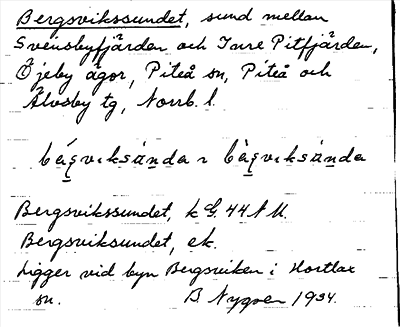 Bergsvikssundet, sund mellan
Svensbyfjärden och Inre Pitfjärden,
Öjeby ägor, Piteå sn, Piteå och
Älvsby tg, Norrb. l.
Bergsvikssundet, k G. 44 A U.
Bergsviksundet, ek.
Ligger vid byn Bergsviken i Hortlax
sn. B. Nygren 1934.